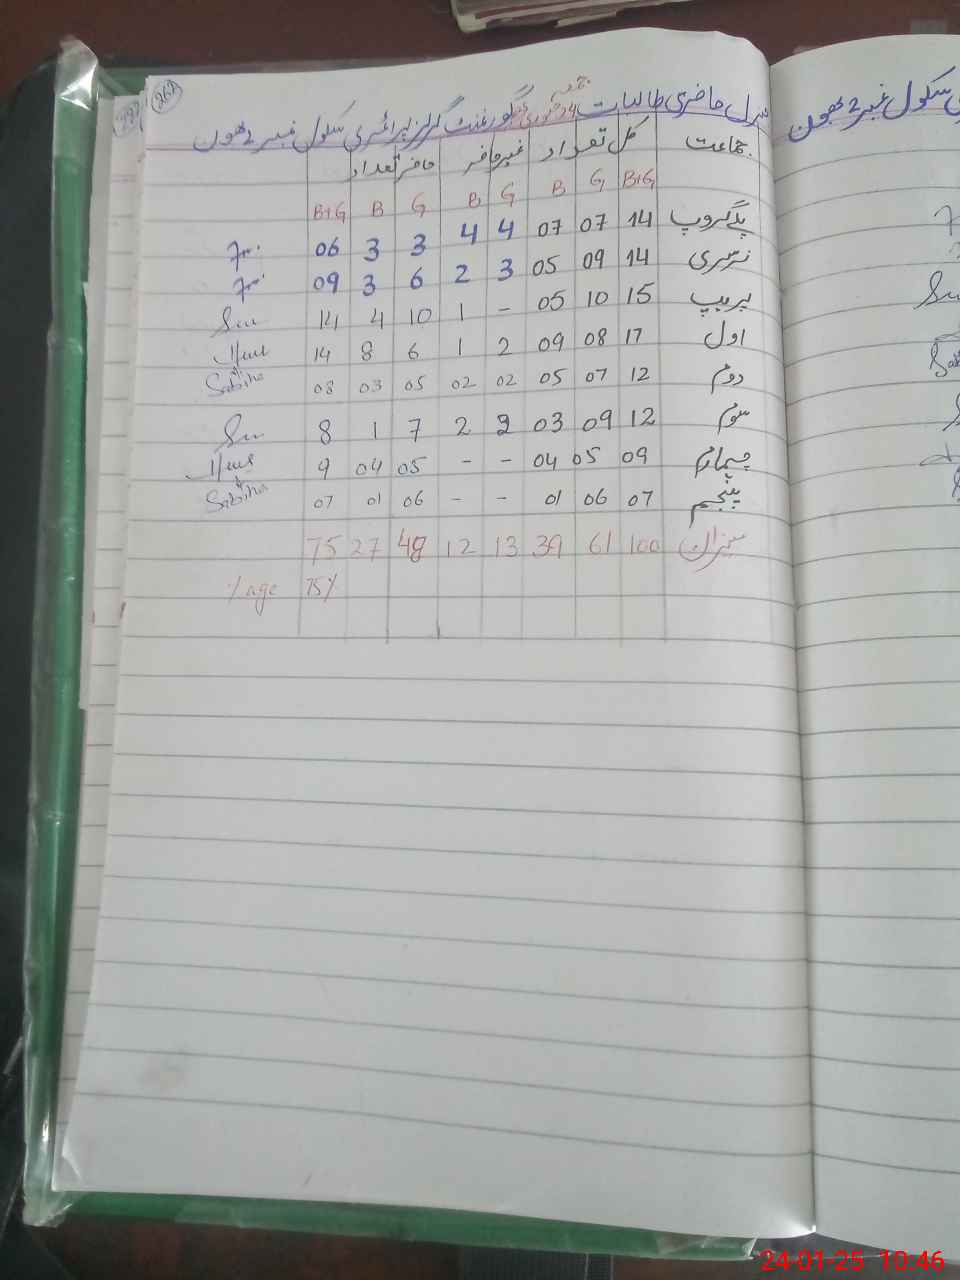 262
جنرل حاضری طالبات 24 جنوری گورنمنٹ گرلز پرائمری سکول نمبر 2 بھون
جماعت کل تعداد غیر حاضر حاضر تعداد
B+G G B G B G B B+G
پلے گروپ 14 07 07 4 4 3 3 06
نرسری 14 09 05 3 2 6 3 09
پریپ 15 10 05 - 1 10 4 14
اول 17 08 09 2 1 6 8 14
دوم 12 07 05 02 02 05 03 08 Sabiha
سوم 12 09 03 2 2 7 1 8
چہارم 09 05 04 - - 05 04 9
پنجم 07 06 01 - - 06 01 07 Sabiha
میزان 100 61 39 13 12 48 27 75
%age 75%
سکول نمبر 2 بھون
24-01-25 10:46